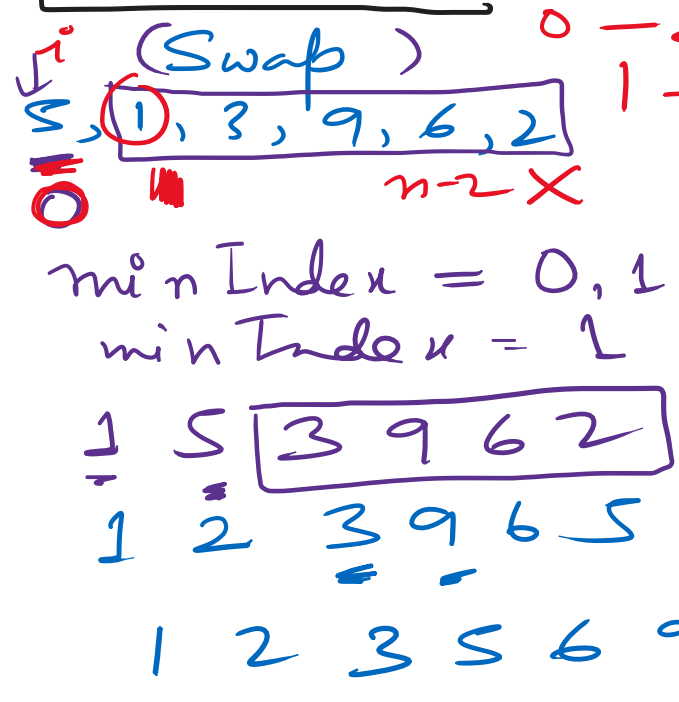 i (Swap) 0 —
5, 1, 3, 9, 6, 2 1 -
0 n-2 X
minIndex = 0, 1
minIndex = 1
1 5 3 9 6 2
1 2 3 9 6 5
1 2 3 5 6